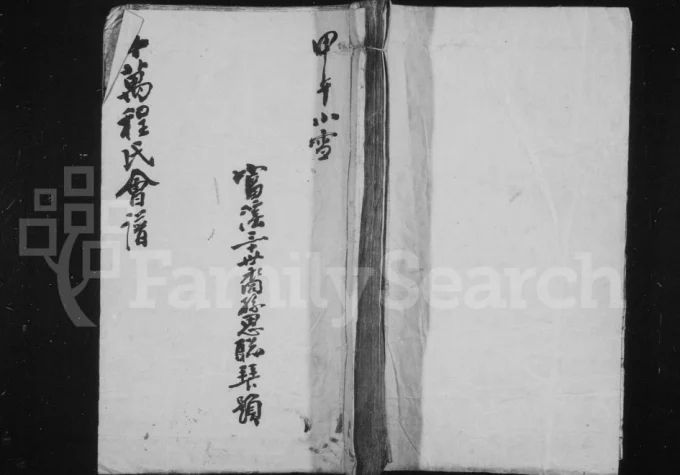 甲午小雪
富溪三十世裔孫思聰琴題
十萬程氏會譜
FamilySearch